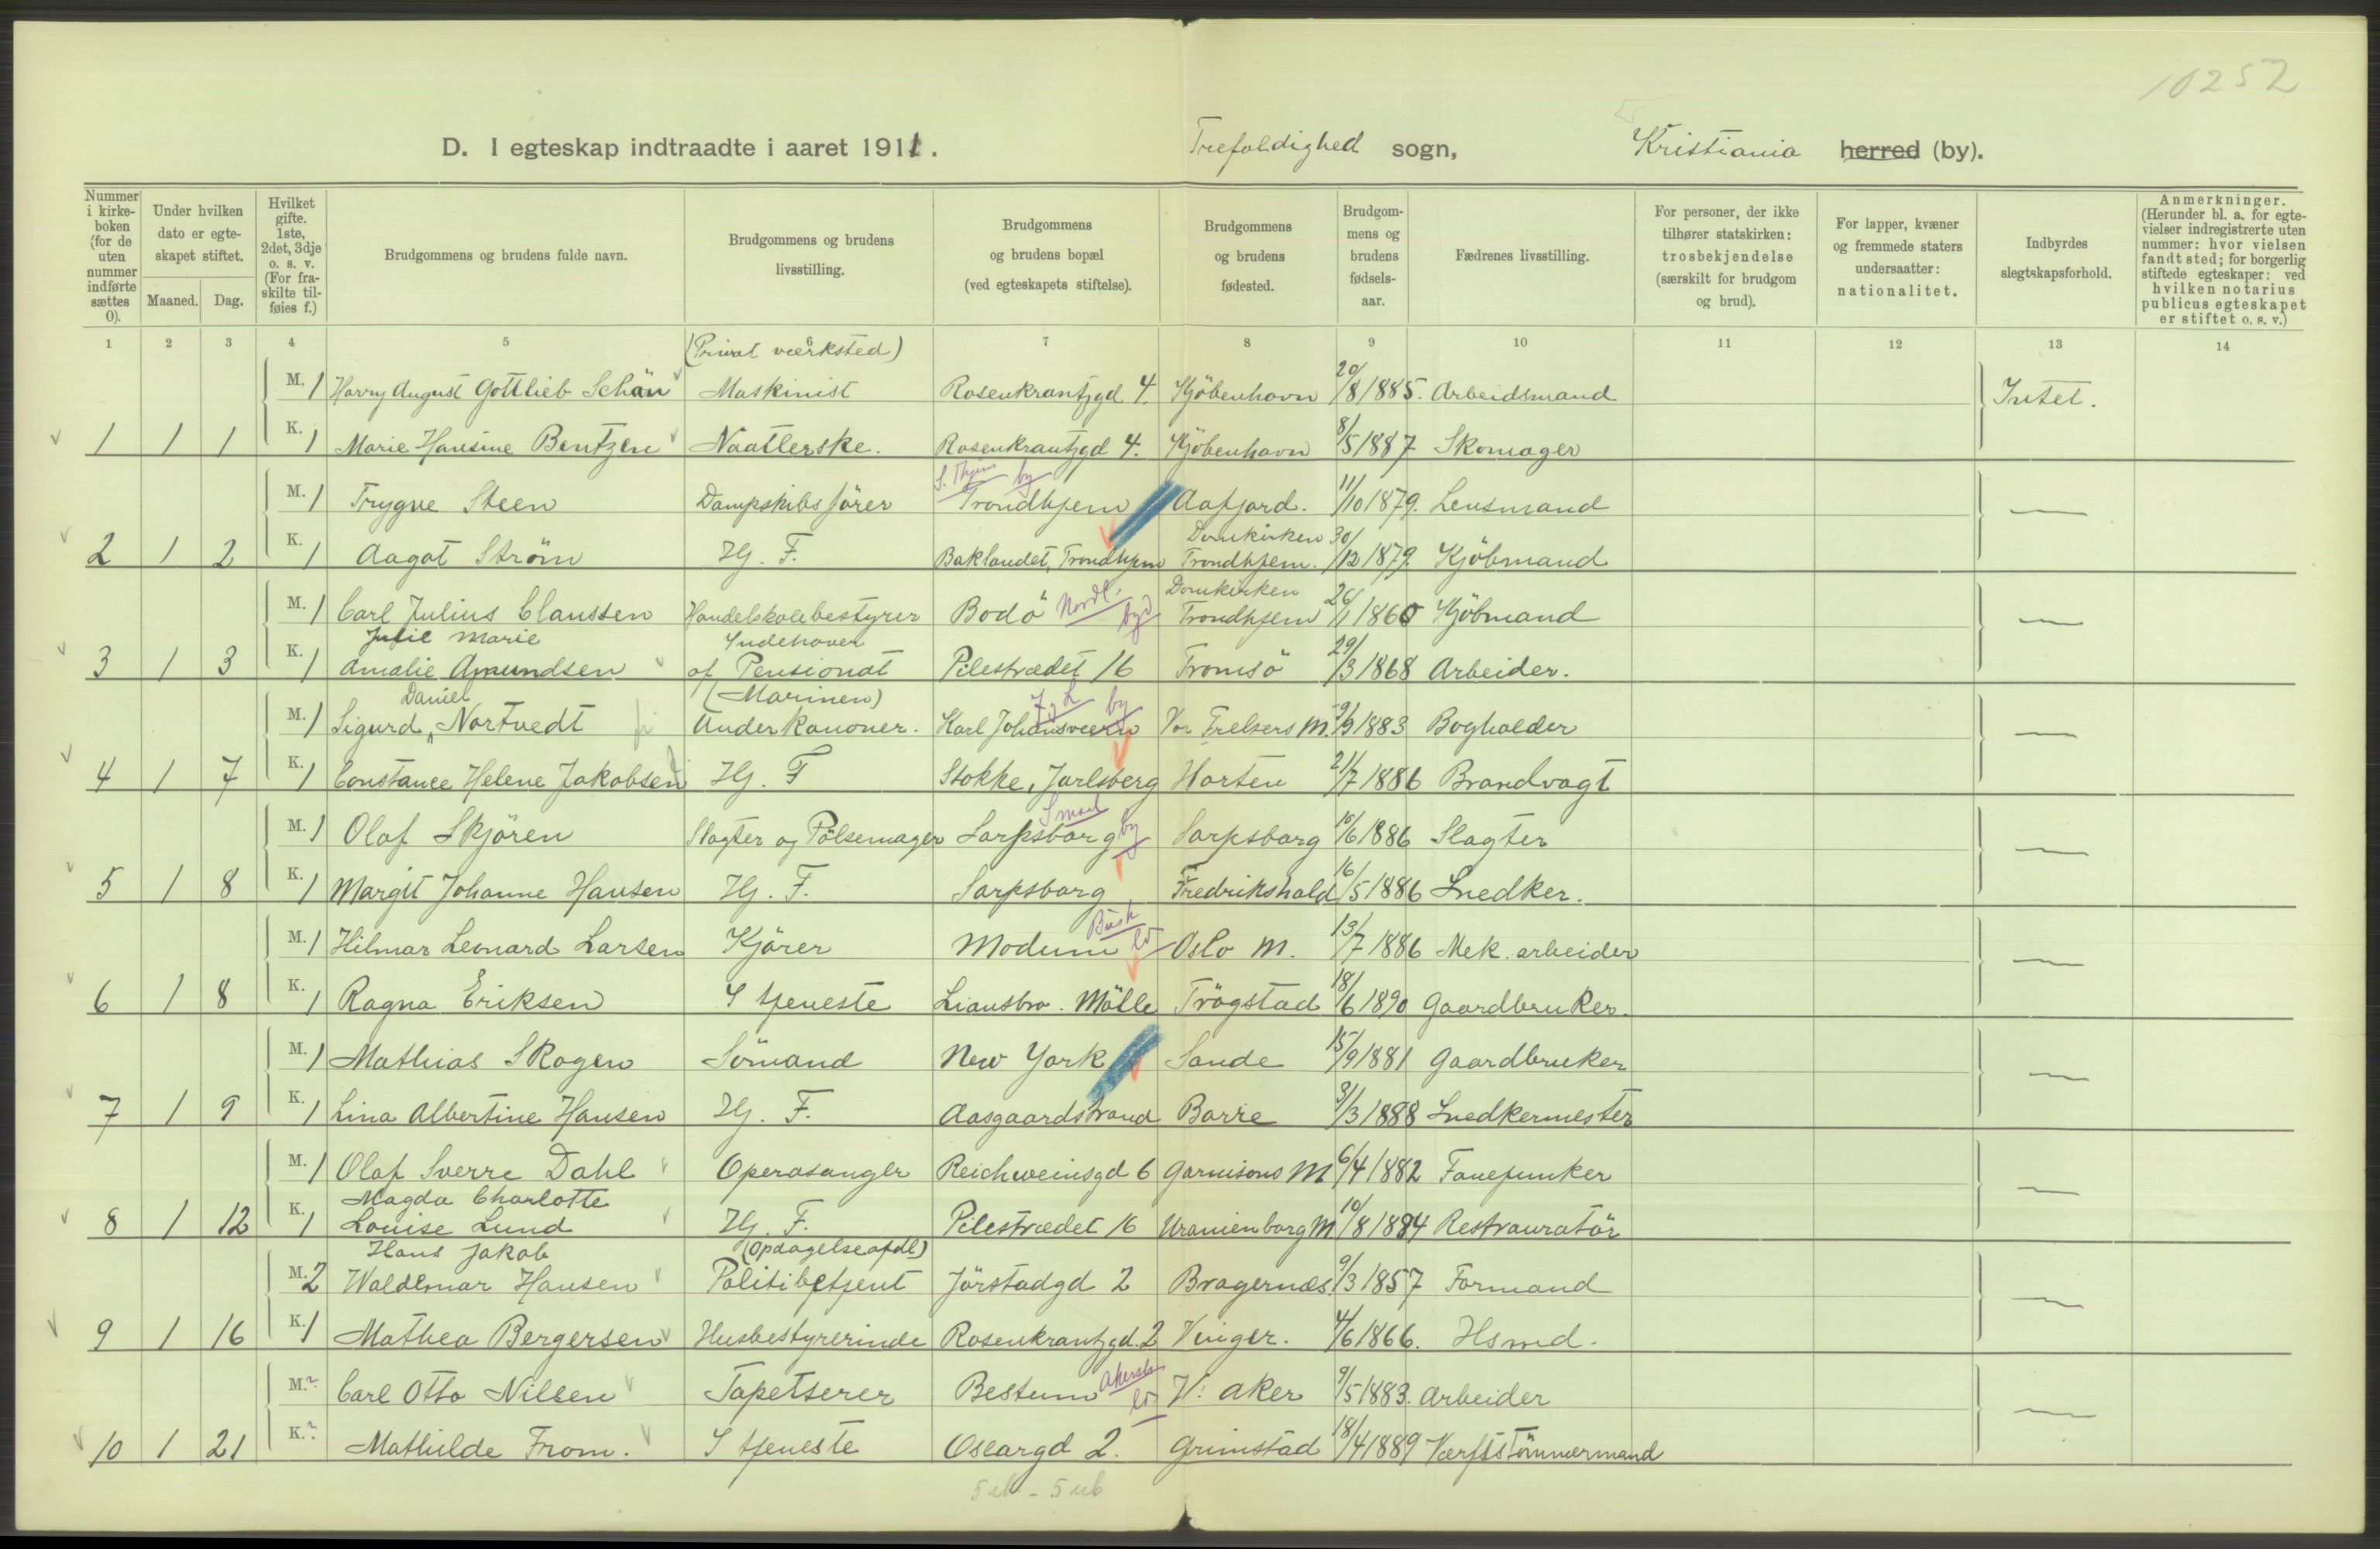 10252
D. I egteskap indtraadte i aaret 1911. Trefoldighed sogn, Kristiania herred (by).
Nummer i kirke-boken (for de uten nummer indførte sættes 0).
Under hvilken dato er egte-skapet stiftet.
Maaned. Dag.
Hvilket gifte. 1ste, 2det, 3dje o. s. v. (For fra-skilte til-føies f.)
Brudgommens og brudens fulde navn.
Brudgommens og brudens livsstilling.
Brudgommens og brudens bopæl (ved egteskapets stiftelse).
Brudgommens og brudens fødested.
Brudgom-mens og brudens fødsels-aar.
Fædrenes livsstilling.
For personer, der ikke tilhører statskirken: trosbekjendelse (særskilt for brudgom og brud).
For lapper, kvæner og fremmede staters undersaatter: nationalitet.
Indbyrdes slegtskapsforhold.
Anmerkninger. (Herunder bl. a. for egte-vielser indregistrerte uten nummer: hvor vielsen fandt sted; for borgerlig stiftede egteskaper: ved hvilken notarius publicus egteskapet er stiftet o. s. v.)
1 2 3 4 5 6 7 8 9 10 11 12 13 14
(Privat værksted)
M. 1 Harry August Gottlieb Schän Maskinist Rosenkrantzgd 4. Kjöbenhavn 20/8 1885. Arbeidsmand Intet.
1 1 1 K. 1 Marie Hansine Bentzen Naatlerske. Rosenkrantzgd 4. Kjöbenhavn 8/5 1887 Skomager
S. Thjem by
M. 1 Trygve Steen Dampskibsförer Trondhjem Aafjord. 11/10 1879. Lensmand —
Domkirken
2 1 2 K. 1 Aagot Ström Hj. F. Baklandet, Trondhjem Trondhjem. 30/12 1879. Kjöbmand
Domkirken
M. 1 Carl Julius Claussen Handelskolebestyrer Bodö Nordl. by Trondhjem 26/1 1860 Kjöbmand —
Julie Marie Indehaver
3 1 3 K. 1 Amalie Amundsen af Pensionat Pilestrædet 16 Tromsö 29/3 1868 Arbeider.
Daniel (Marinen) J. L by
M. 1 Sigurd Nortvedt Underkanoner. Karl Johansværn Vor Frelsers M. 9/9 1883 Bogholder —
4 1 7 K. 1 Constance Helene Jakobsen Hj. F Stokke, Jarlsberg Horten 21/7 1886 Brandvagt
Smaal by
M. 1 Olaf Skjören Slagter og Pölsemager Sarpsborg Sarpsborg 10/6 1886 Slagter —
5 1 8 K. 1 Margit Johanne Hansen Hj. F. Sarpsborg Fredrikshald 16/5 1886 Snedker.
Busk ld
M. 1 Hilmar Leonard Larsen Kjörer Modum Oslo M. 13/7 1886 Mek. arbeider —
6 1 8 K. 1 Ragna Eriksen I tjeneste Liansbro. Mölle Trögstad 18/6 1890 Gaardbruker.
M. 1 Mathias Skogen Sömand New York Sande 15/9 1881 Gaardbruker —
7 1 9 K. 1 Lina Albertine Hansen Hj. F. Aasgaardstrand Borre 3/3 1888 Snedkermester
M. 1 Olaf Sverre Dahl Operasanger Reichweinsgd 6 Garnisons M 6/4 1882 Fanejunker —
Magda Charlotte
8 1 12 K. 1 Louise Lund Hj. F. Pilestrædet 16 Uranienborg M 10/8 1884 Restauratör
Hans Jakob (Opdagelseafdl)
M. 2 Waldemar Hansen Politibetjent Jörstadgd 2 Bragernæs 9/3 1857 Formand —
9 1 16 K. 1 Mathea Bergersen Husbestyrerinde Rosenkrantzgd. 2 Vinger. 4/6 1866. Hsmd.
M. ? Carl Otto Nilsen Tapetserer Bestum Akersh ld V: Aker 9/5 1883. Arbeider —
10 1 21 K. ? Mathilde From. I tjeneste Oscargd 2. Grimstad 18/4 1889 Værftstömmermand